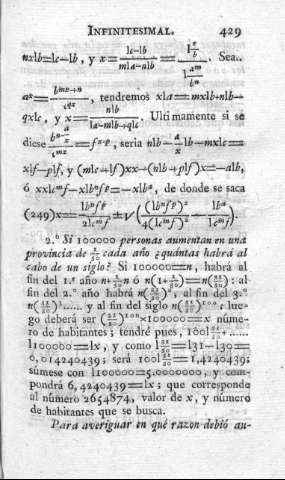 INFINITESIMAL. 429
nxlb=lc-lb, y x=(lc-lb)/(mla-nlb) = . Sea..
tendremos xla=mxlb+nlb+
qxlc, y x= nlb/(la-mlb+qlc) . Ultimamente si se
diese , seria nlb- lb-mxlc=
xlf-plf, y (mlc+lf)xx-(nlb+plf)x=-alb,
ó xxlcᵐf-xlbⁿfᵖ=-xlbᵃ, de donde se saca
(249)x= lbⁿfᵖ/2lcᵐf ±√( (lbⁿfᵖ)²/4(lcᵐf)² - lbᵃ/lcᵐf ).
2.º Si 100000 personas aumentan en una
provincia de 1/30 cada año ¿quántas habrá al
cabo de un siglo? Si 100000=n, habrá al
fin del 1.º año n+ n ó n(1+1/30)=n(31/30): al
fin del 2.º año habrá n(31/30)², al fin del 3.º
n(31/30)³..... y al fin del siglo n(31/30)¹⁰⁰: lue-
go deberá ser (31/30)¹⁰⁰×100000=x núme-
ro de habitantes; tendré pues, 100l31/30+.....
l100000=lx, y como l31/30=l31-l30=
0,014240439; será 100l31/30=1,4240439;
súmese con l100000=5,0000000, y com-
pondrá 6,4240439=lx; que corresponde
al número 2654874, valor de x, y número
de habitantes que se busca.
Para averiguar en qué razon debió au-